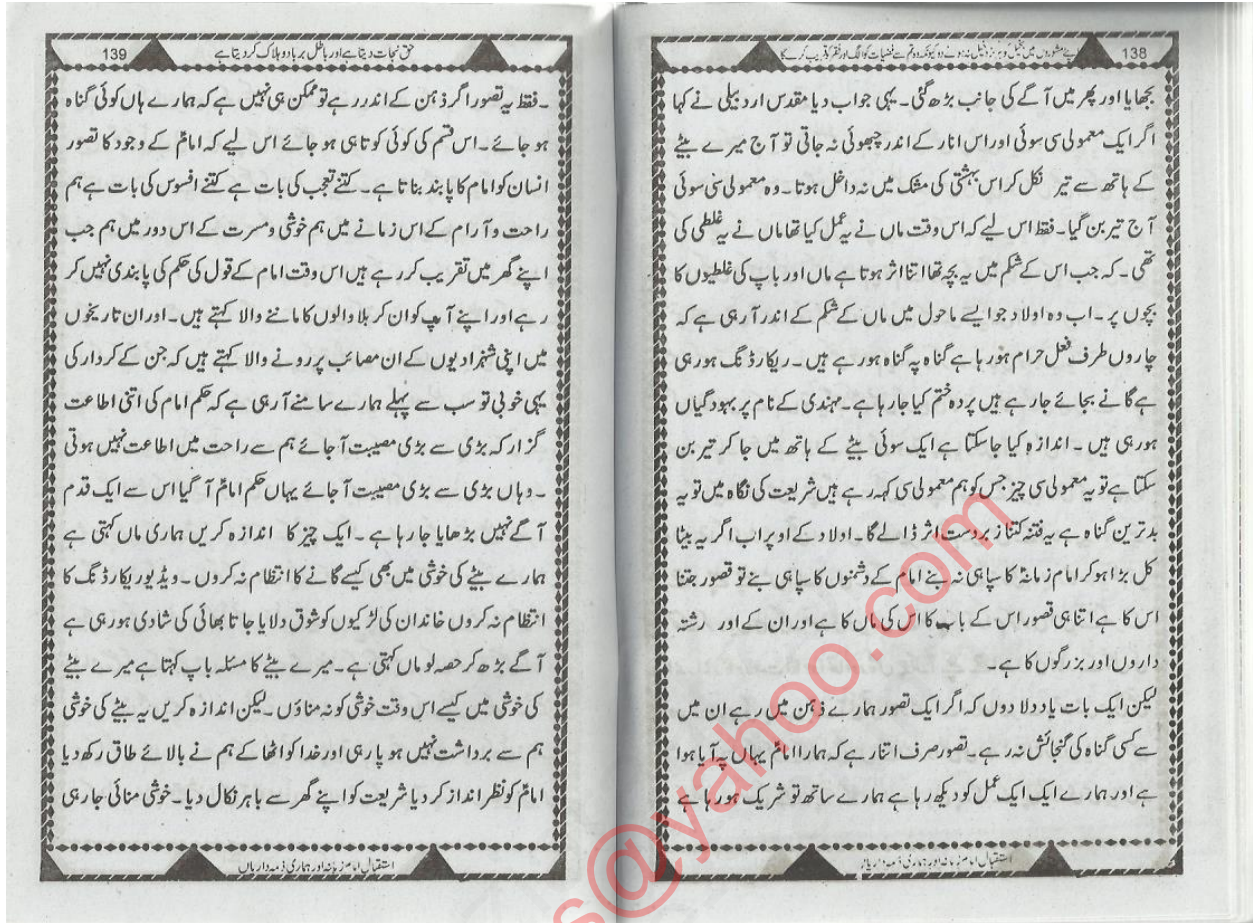 138
اپنے مشوروں میں بخیل کو ہرگز دخیل نہ ہونے دو کیونکہ وہ تم سے فضیلت کو الگ اور فقر کو قریب کرے گا
بجھایا اور پھر میں آگے کی جانب بڑھ گئی۔ یہی جواب دیا مقدس اردبیلی نے کہا
اگر ایک معمولی سی سوئی اور اس انار کے اندر چبھوئی نہ جاتی تو آج میرے بیٹے
کے ہاتھ سے تیر نکل کر اس بہشتی کی مشک میں نہ داخل ہوتا۔ وہ معمولی سی سوئی
آج تیر بن گیا۔ فقط اس لیے کہ اس وقت ماں نے یہ عمل کیا تھا ماں نے یہ غلطی کی
تھی۔ کہ جب اس کے شکم میں یہ بچہ تھا اتنا اثر ہوتا ہے ماں اور باپ کی غلطیوں کا
بچوں پر۔ اب وہ اولاد جو ایسے ماحول میں ماں کے شکم کے اندر آ رہی ہے کہ
چاروں طرف فعل حرام ہو رہا ہے گناہ پہ گناہ ہو رہے ہیں۔ ریکارڈنگ ہو رہی
ہے گانے بجائے جا رہے ہیں پردہ ختم کیا جا رہا ہے۔ مہندی کے نام پر بہودگیاں
ہو رہی ہیں۔ اندازہ کیا جا سکتا ہے ایک سوئی بیٹے کے ہاتھ میں جا کر تیر بن
سکتا ہے تو یہ معمولی سی چیز جس کو ہم معمولی سی کہہ رہے ہیں شریعت کی نگاہ میں تو یہ
بدترین گناہ ہے یہ فتنہ کتنا زبردست اثر ڈالے گا۔ اولاد کے اوپر اب اگر یہ بیٹا
کل بڑا ہو کر امام زمانہؑ کا سپاہی نہ بنے امام کے دشمنوں کا سپاہی بنے تو قصور جتنا
اس کا ہے اتنا ہی قصور اس کے باپ کا اس کی ماں کا ہے اور ان کے اور رشتہ
داروں اور بزرگوں کا ہے۔
لیکن ایک بات یاد دلا دوں کہ اگر ایک تصور ہمارے ذہن میں رہے ان میں
سے کسی گناہ کی گنجائش نہ رہے۔ تصور صرف اتنا رہے کہ ہمارا امامؑ یہاں پہ آیا ہوا
ہے اور ہمارے ایک ایک عمل کو دیکھ رہا ہے ہمارے ساتھ تو شریک ہو رہا ہے
استقبال امام زمانہ اور ہماری ذمہ داریاں
139
حق نجات دیتا ہے اور باطل برباد و ہلاک کر دیتا ہے
۔ فقط یہ تصور اگر ذہن کے اندر رہے تو ممکن ہی نہیں ہے کہ ہمارے ہاں کوئی گناہ
ہو جائے۔ اس قسم کی کوئی کوتاہی ہو جائے اس لیے کہ امامؑ کے وجود کا تصور
انسان کو امام کا پابند بناتا ہے۔ کتنے تعجب کی بات ہے کتنے افسوس کی بات ہے ہم
راحت و آرام کے اس زمانے میں ہم خوشی و مسرت کے اس دور میں ہم جب
اپنے گھر میں تقریب کر رہے ہیں اس وقت امام کے قول کی حکم کی پابندی نہیں کر
رہے اور اپنے آپ کو ان کربلا والوں کا ماننے والا کہتے ہیں۔ اور ان تاریخوں
میں اپنی شہزادیوں کے ان مصائب پر رونے والا کہتے ہیں کہ جن کے کردار کی
یہی خوبی تو سب سے پہلے ہمارے سامنے آ رہی ہے کہ حکم امام کی اتنی اطاعت
گزار کہ بڑی سے بڑی مصیبت آ جائے ہم سے راحت میں اطاعت نہیں ہوتی
۔ وہاں بڑی سے بڑی مصیبت آ جائے یہاں حکم امامؑ آ گیا اس سے ایک قدم
آگے نہیں بڑھایا جا رہا ہے۔ ایک چیز کا اندازہ کریں ہماری ماں کہتی ہے
ہمارے بیٹے کی خوشی میں بھی کیسے گانے کا انتظام نہ کروں۔ ویڈیو ریکارڈنگ کا
انتظام نہ کروں خاندان کی لڑکیوں کو شوق دلایا جاتا بھائی کی شادی ہو رہی ہے
آگے بڑھ کر حصہ لو ماں کہتی ہے۔ میرے بیٹے کا مسئلہ باپ کہتا ہے میرے بیٹے
کی خوشی میں کیسے اس وقت خوشی کو نہ مناؤں۔ لیکن اندازہ کریں یہ بیٹے کی خوشی
ہم سے برداشت نہیں ہو پا رہی اور خدا کو اٹھا کے ہم نے بالائے طاق رکھ دیا
امامؑ کو نظر انداز کر دیا شریعت کو اپنے گھر سے باہر نکال دیا۔ خوشی منائی جا رہی
استقبال امام زمانہ اور ہماری ذمہ داریاں
s@yahoo.com